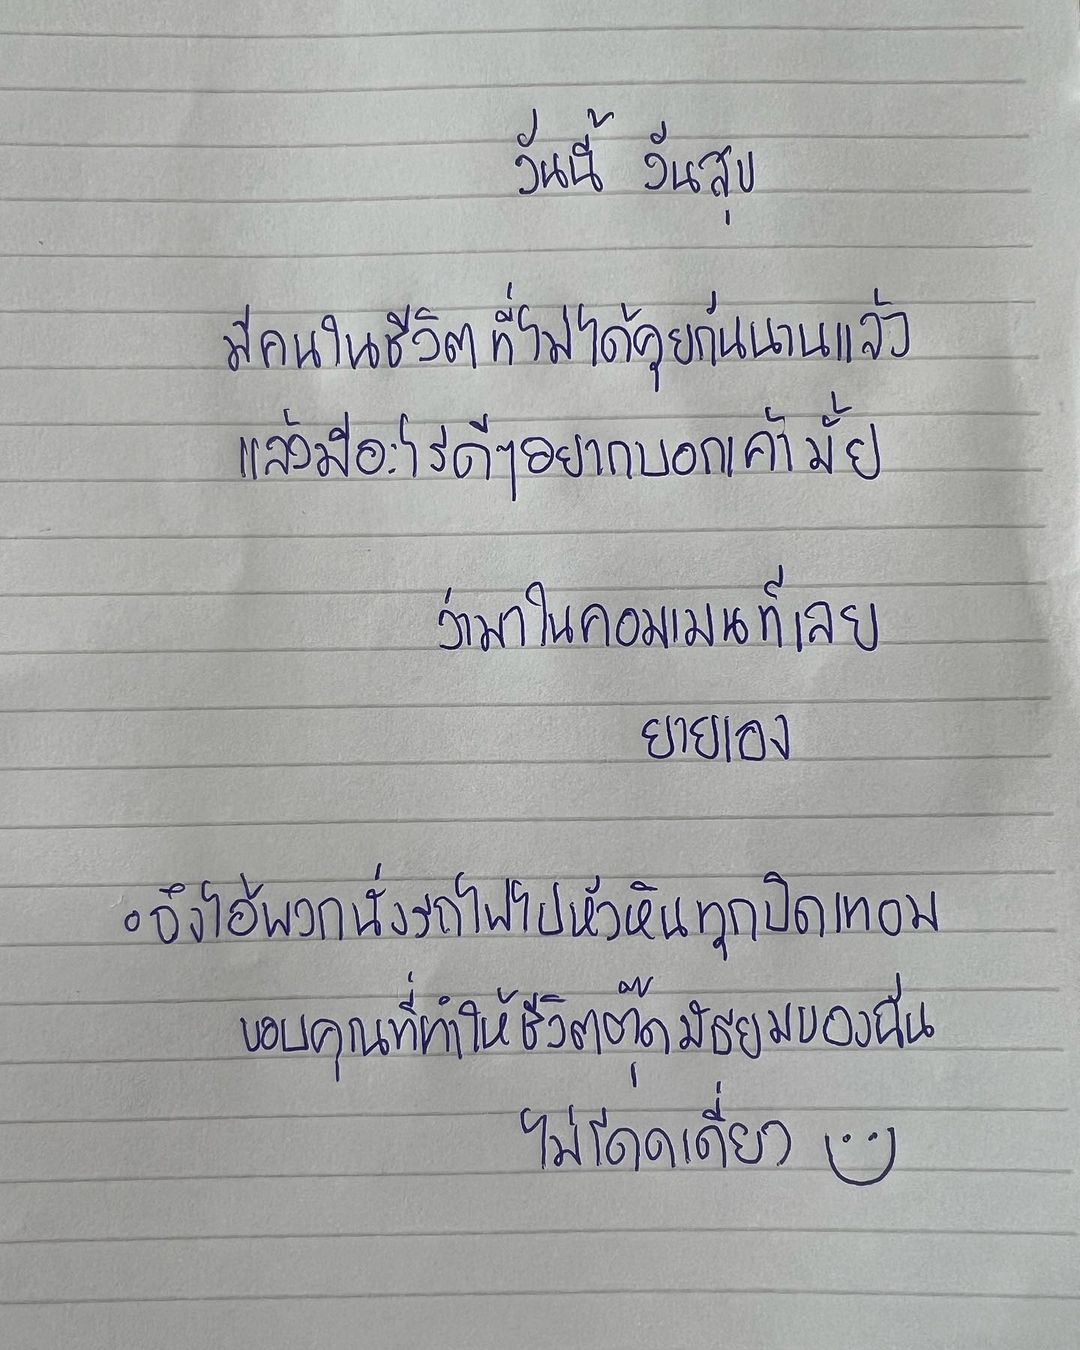 วันนี้ วันสุข
มีคนในชีวิตที่ไม่ได้คุยกันนานแล้ว
แล้วมีอะไรดีๆอยากบอกเค้ามั้ย
ว่ามาในคอมเมนท์เลย
ยายเอง
• ถึงไอ้พวกนั่งรถไฟไปหัวหินทุกปิดเทอม
ขอบคุณที่ทำให้ชีวิตตุ๊ดมัธยมของฉัน
ไม่โดดเดี่ยว